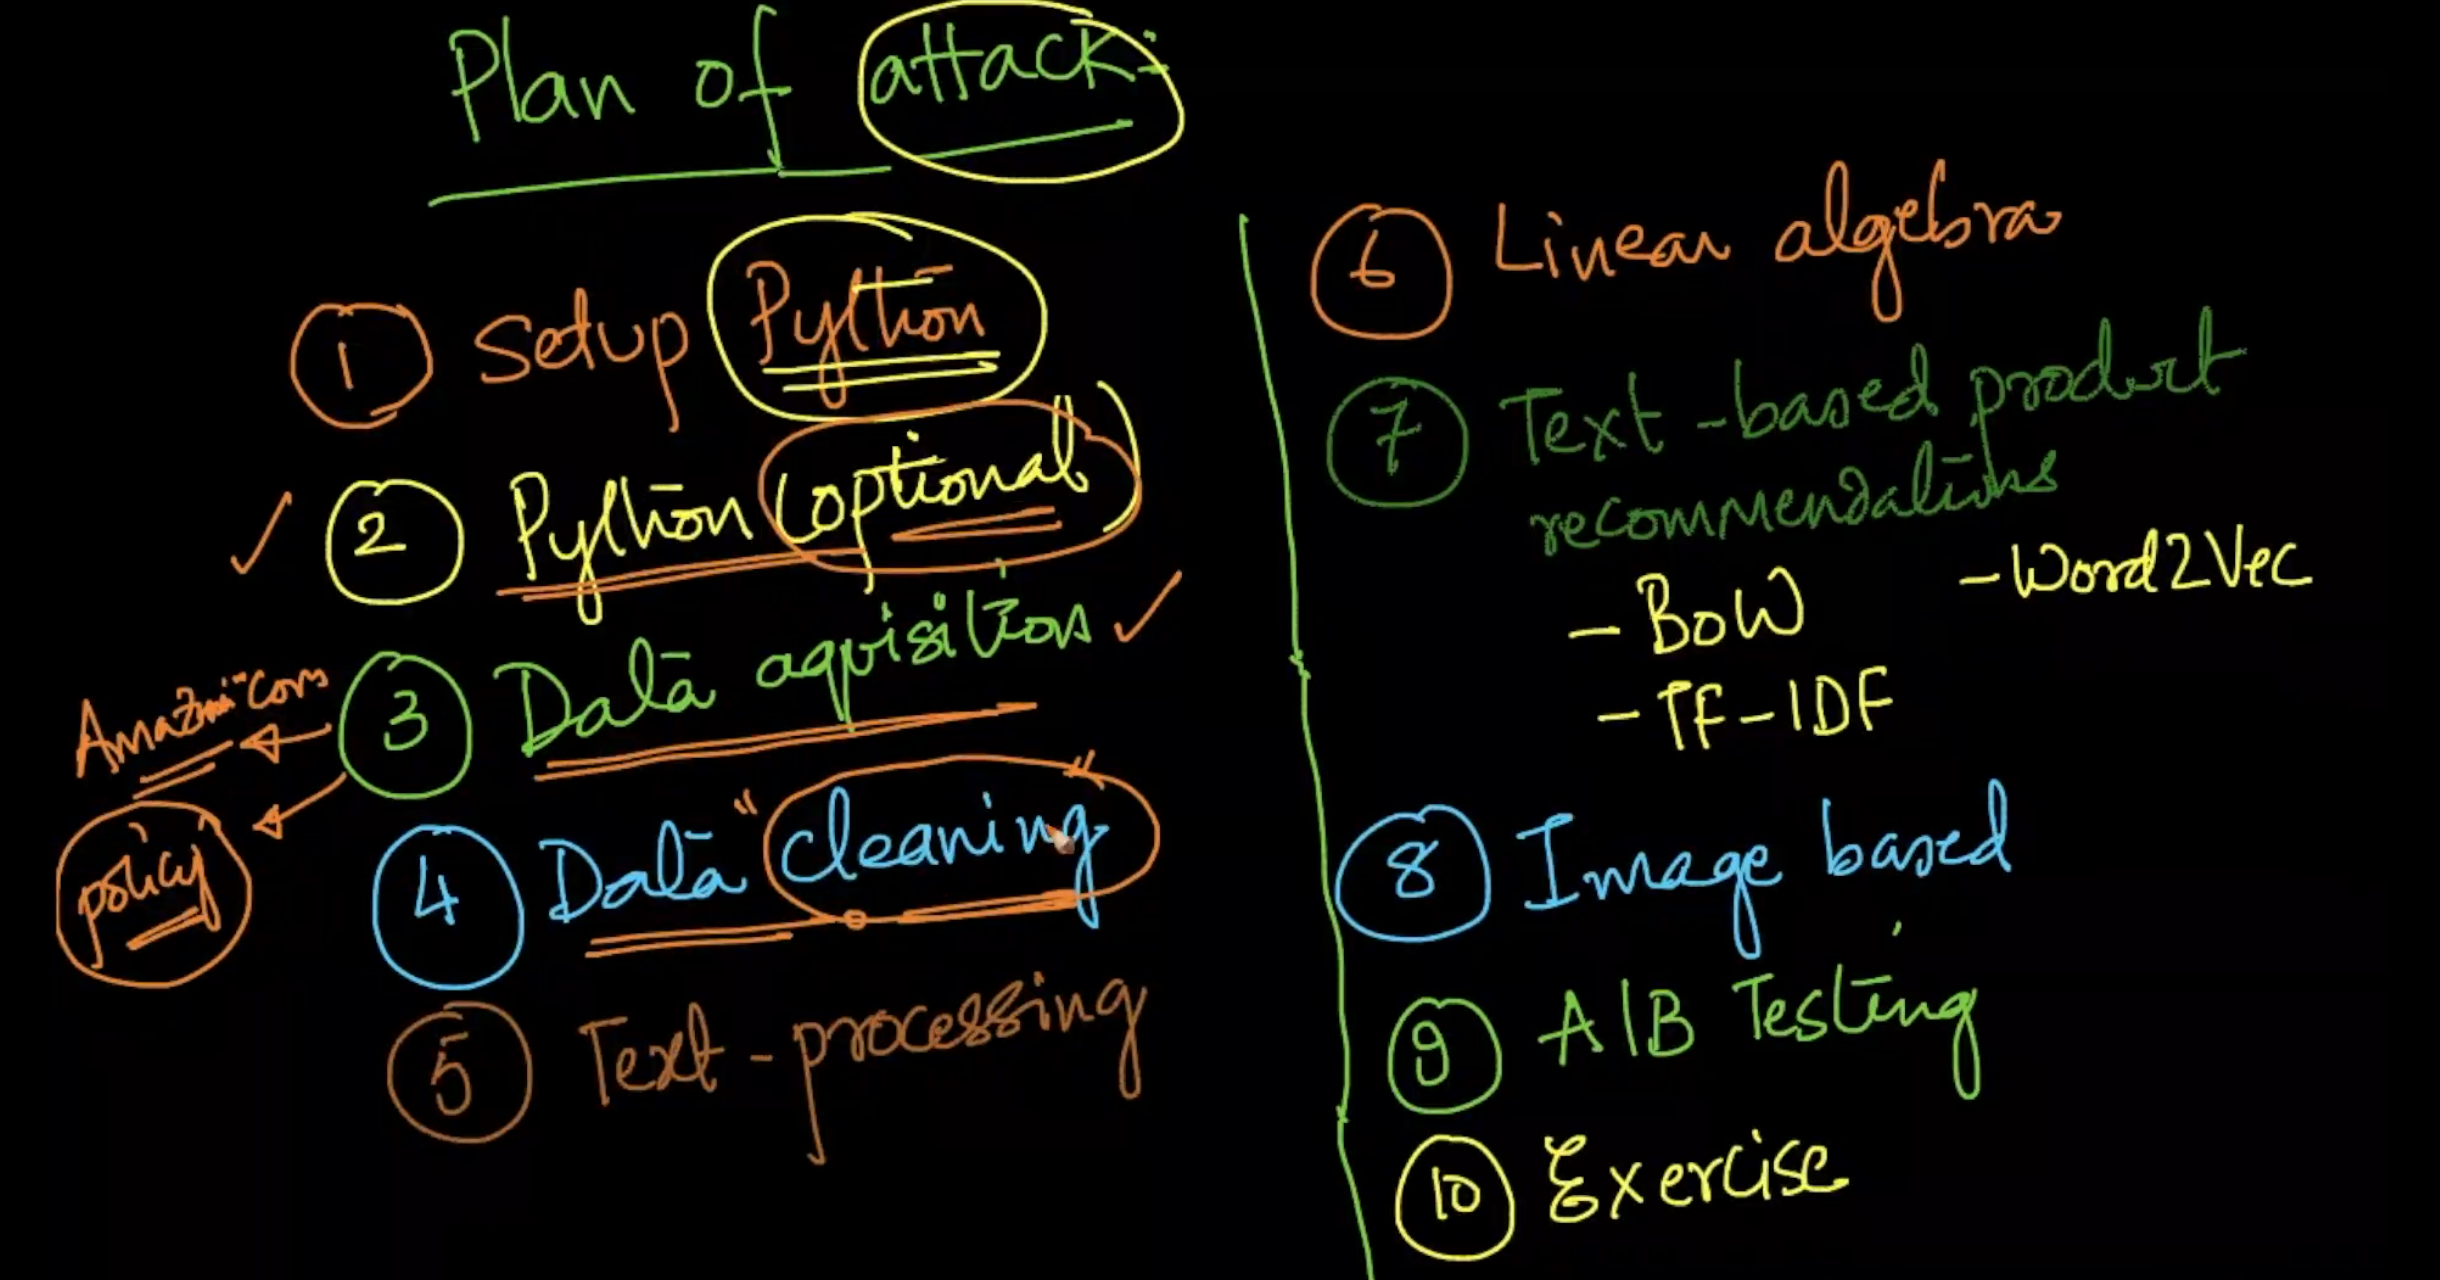 Plan of attack:-
1 Setup Python
2 Python (optional)
3 Data aqvisition
Amazon.com
policy
4 Data "cleaning"
5 Text-processing
6 Linear algebra
7 Text-based product
recommendations
- BoW - Word2Vec
- TF-IDF
8 Image based
9 A/B Testing
10 Exercise